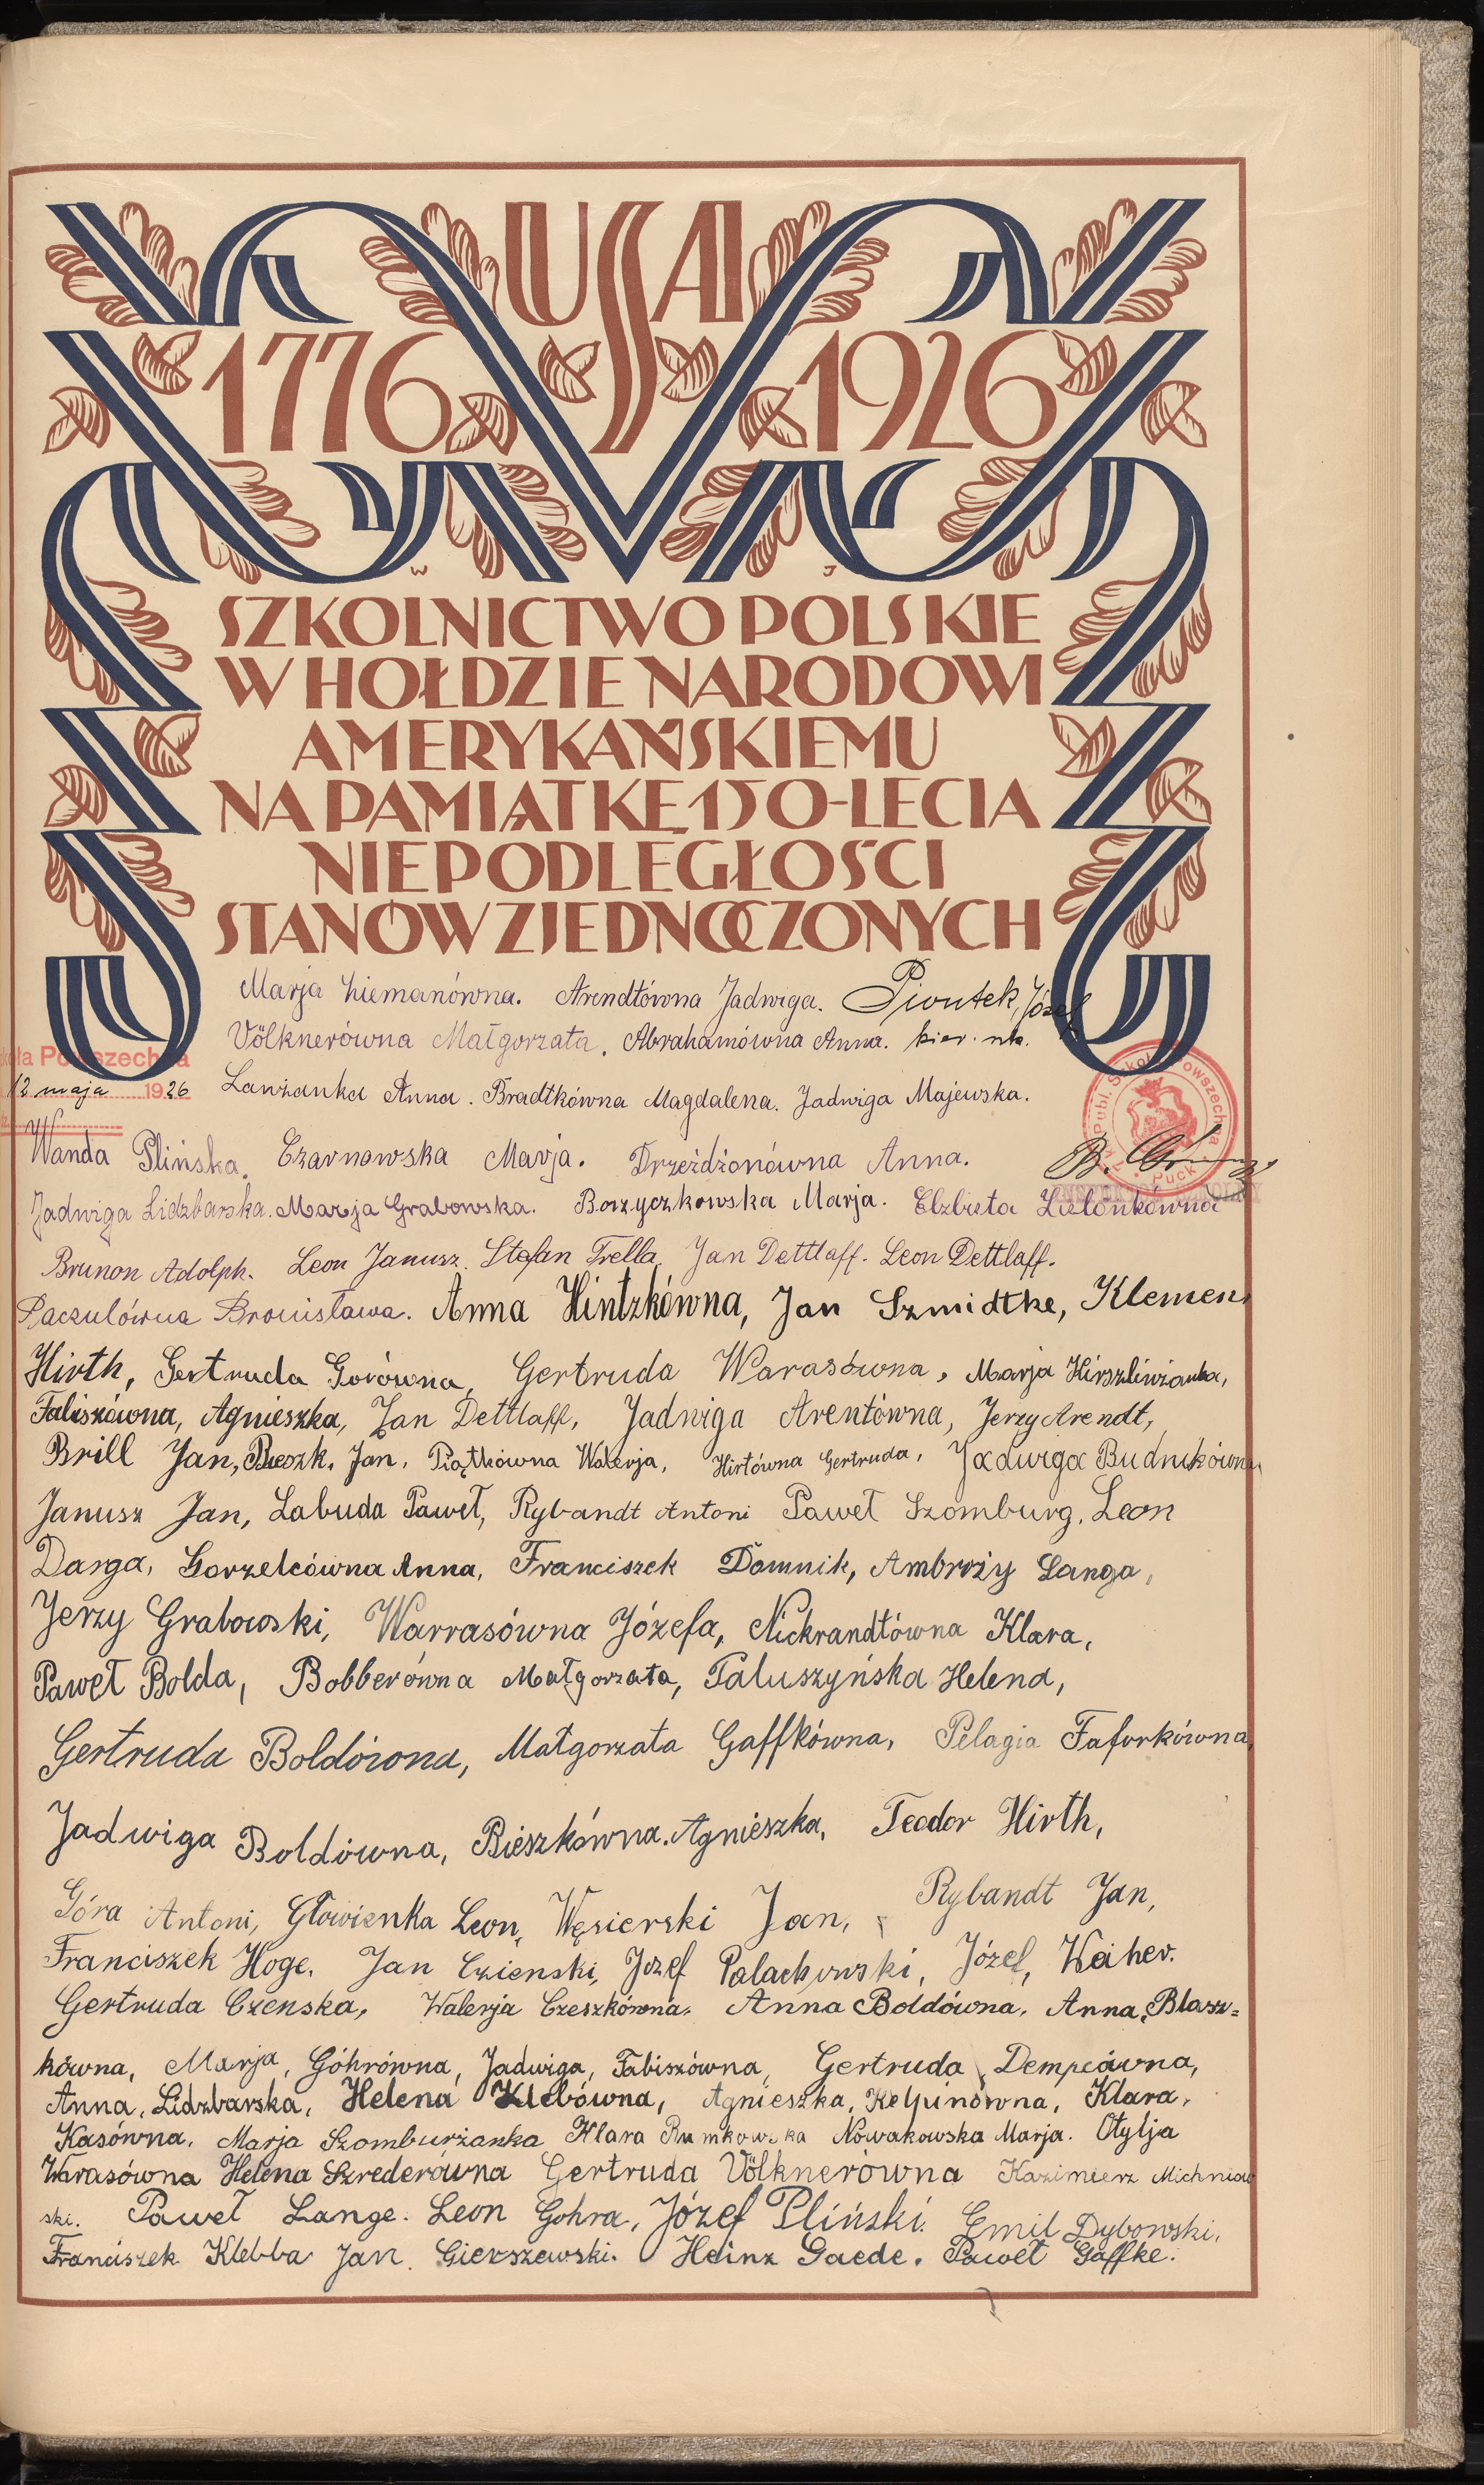 USA
1776 1926
W J
SZKOLNICTWO POLSKIE
W HOŁDZIE NARODOWI
AMERYKAŃSKIEMU
NA PAMIĄTKĘ 150-LECIA
NIEPODLEGŁOŚCI
STANÓW ZJEDNOCZONYCH
Marja Liemanówna. Arendtówna Jadwiga. Piontek, Józef
Völknerówna Małgorzata. Abrahamówna Anna. kier.
Powszechna
12 maja 1926
Lanżanka Anna. Bradtkówna Magdalena. Jadwiga Majewska.
Publ. Szkoła Powszechna Puck
Wanda Plińska. Czarnowska Marja. Drzeżdżonówna Anna. B.
INSPEKTOR SZKOLNY
Jadwiga Lidzbarska. Marja Grabowska. Borzyczkowska Marja. Elzbieta Zielonkówna
Brunon Adolph. Leon Janusz. Stefan Trella. Jan Dettlaff. Leon Dettlaff.
Paczulówna Bronisława. Anna Hintzkówna, Jan Szmidtke, Klemens
Hirth, Gertruda Gorówna, Gertruda Warasówna, Marja Hirszliwianka,
Faliszówna, Agnieszka, Jan Dettlaff, Jadwiga Arentówna, Jerzy Arendt,
Brill Jan, Bieszk, Jan, Piątkówna Walerja, Hirtówna Gertruda, Jadwiga Budnikówna
Janusz Jan, Labuda Paweł, Rybandt Antoni Paweł Szomburg, Leon
Darga, Gorzelcówna Anna, Franciszek Domnik, Ambroży Langa,
Jerzy Grabowski, Warrasówna Józefa, Nickrandtówna Klara,
Paweł Bolda, Bobberówna Małgorzata, Paluszyńska Helena,
Gertruda Boldówna, Małgorzata Gaffkówna, Pelagia Faforkówna,
Jadwiga Boldówna, Bieszkówna. Agnieszka, Teodor Hirth,
Góra Antoni, Głowienka Leon, Węsierski Jan, Rybandt Jan,
Franciszek Hoge. Jan Czienski, Jozef Palachowski, Józef, Weiher.
Gertruda Czenska, Walerja Czeszkówna, Anna Boldówna, Anna, Blasz=
kówna, Marja, Góhrówna, Jadwiga, Fabiszówna, Gertruda, Dempcówna,
Anna, Lidzbarska, Helena Klebówna, Agnieszka, Kelpinówna, Klara,
Kasówna, Marja Szomburżanka Klara Rumkowska Nowakowska Marja. Otylja
Warasówna Helena Szrederówna Gertruda Völknerówna Kazimierz Michniow
ski. Paweł Lange. Leon Gohra, Józef Pliński. Emil Dybowski,
Franciszek Klebba Jan Gierszewski. Heinz Gaede. Paweł Gaffke.